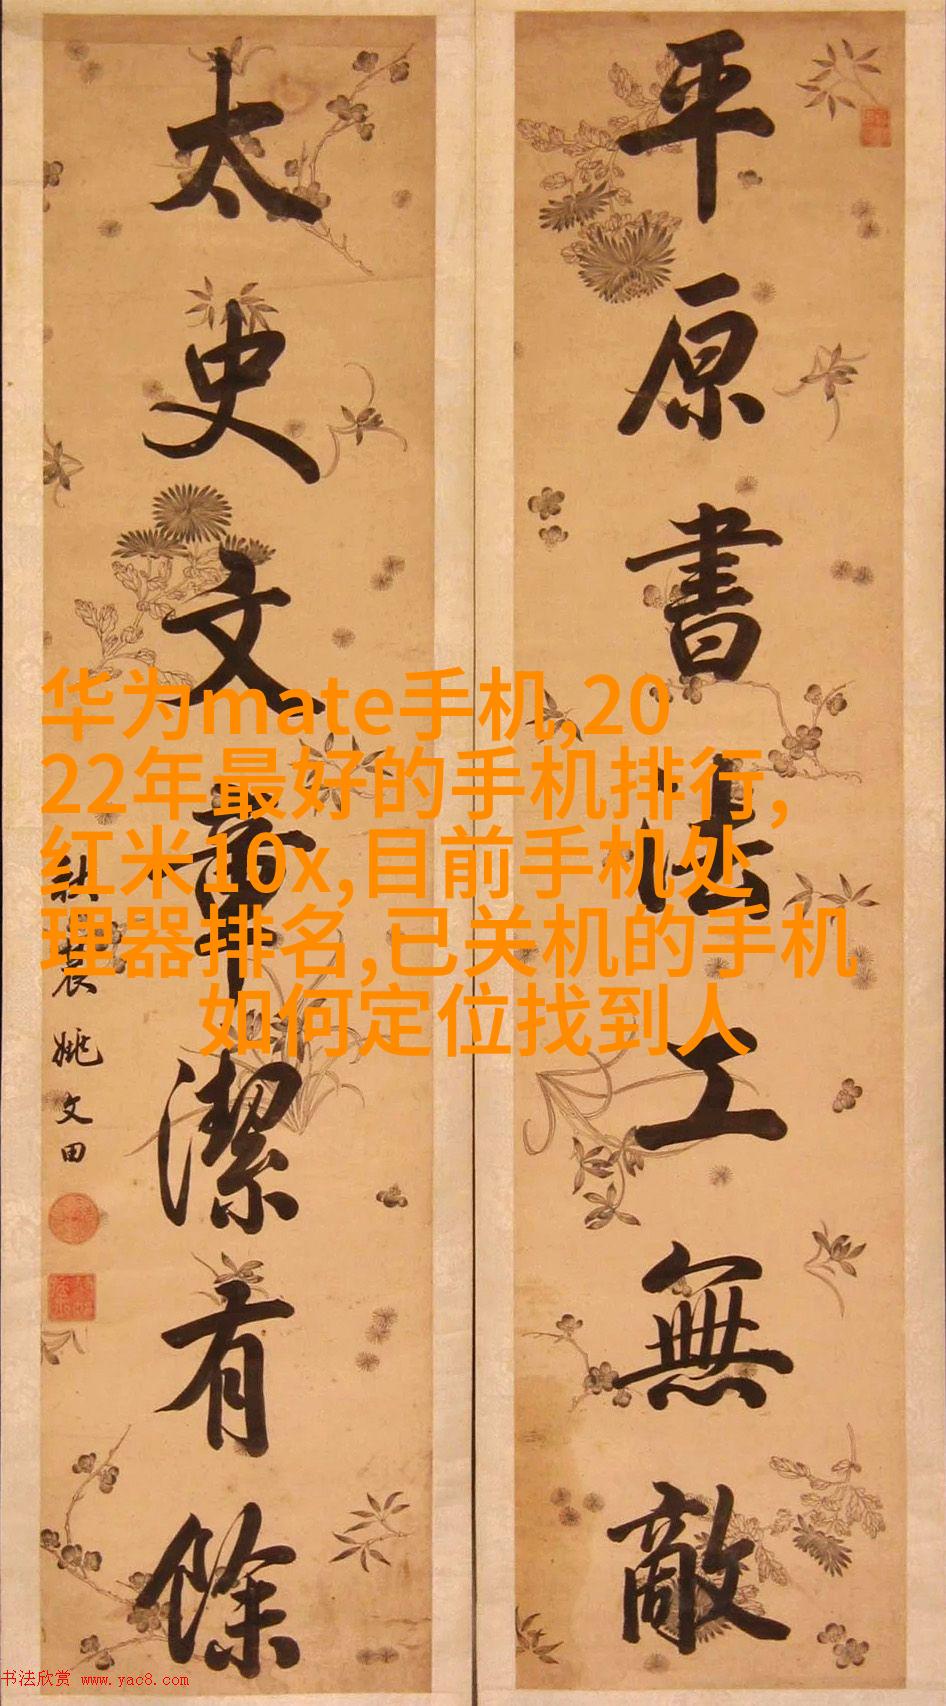 平原書法工無敵
太史文章潔有餘
姚文田
华为mate手机,20
22年最好的手机排行,
红米10x,目前手机处
理器排名,已关机的手机
如何定位找到人
书法欣赏 www.yac8.com